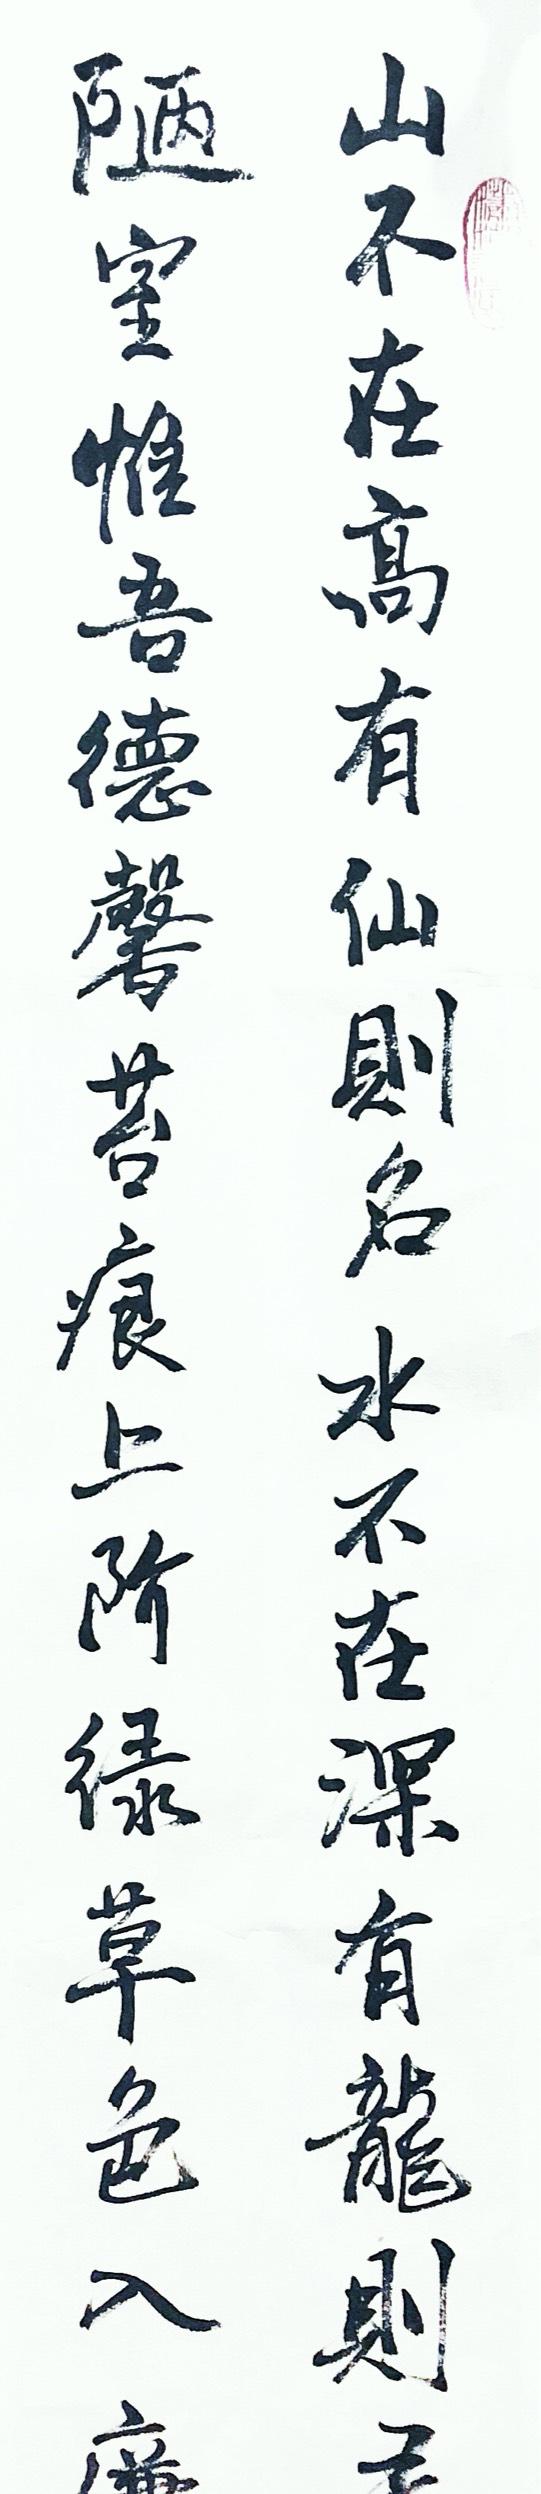 山不在高有仙則名水不在深有龍則
陋室惟吾德馨苔痕上阶绿草色入